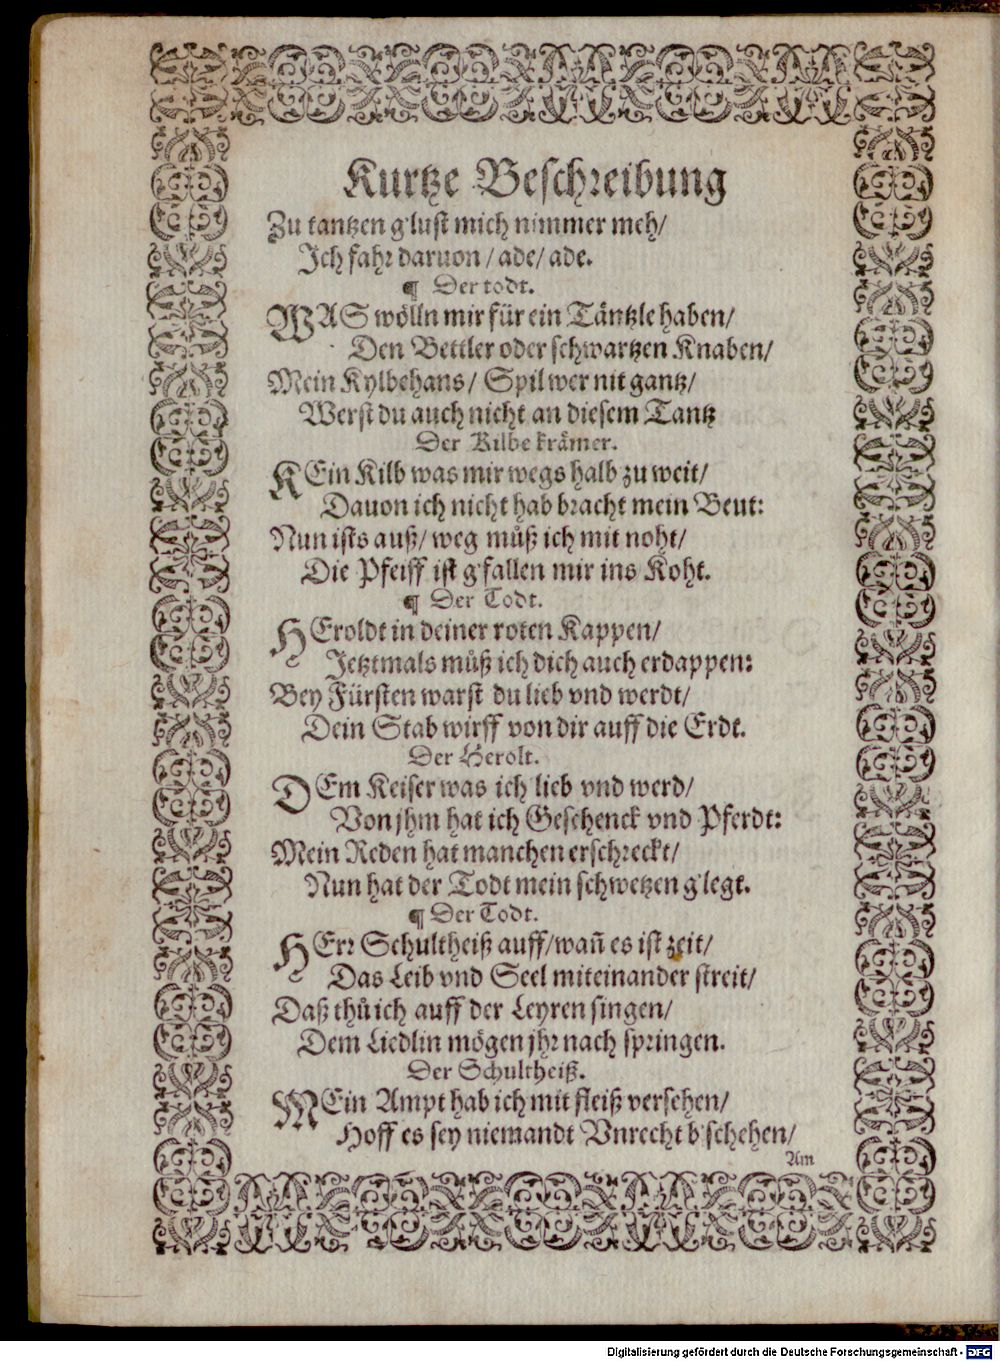 Kurtze Beschreibung
Zu tantzen g'lust mich nimmer meh/
Ich fahr daruon / ade/ ade.
¶ Der todt.
WAS wölln mir für ein Täntzle haben/
Den Bettler oder schwartzen Knaben/
Mein Kylbehans/ Spil wer nit gantz/
Werst du auch nicht an diesem Tantz
Der Kilbe krämer.
KEin Kilb was mir wegs halb zu weit/
Dauon ich nicht hab bracht mein Beut:
Nun ists auß/ weg můß ich mit noht/
Die Pfeiff ist g'fallen mir ins Koht.
¶ Der Todt.
HEroldt in deiner roten Kappen/
Jetztmals můß ich dich auch erdappen:
Bey Fürsten warst du lieb vnd werdt/
Dein Stab wirff von dir auff die Erdt.
Der Herolt.
DEm Keiser was ich lieb vnd werd/
Von jhm hat ich Geschenck vnd Pferdt:
Mein Reden hat manchen erschreckt/
Nun hat der Todt mein schwetzen g'legt.
¶ Der Todt.
HErr Schultheiß auff/wañ es ist zeit/
Das Leib vnd Seel miteinander streit/
Daß thů ich auff der Leyren singen/
Dem Liedlin mögen jhr nach springen.
Der Schultheiß.
MEin Ampt hab ich mit fleiß versehen/
Hoff es sey niemandt Vnrecht b'schehen/
Am
Digitalisierung gefördert durch die Deutsche Forschungsgemeinschaft - DFG